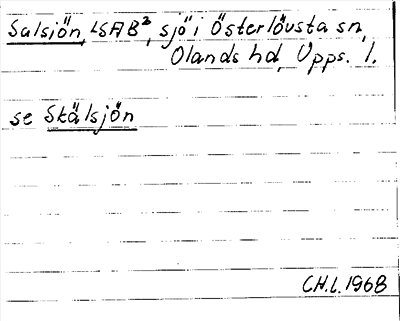 Salsjön, LSAB², sjö i Österlövsta sn,
Olands hd, Upps. l.
se Skälsjön
C.H.L. 1968